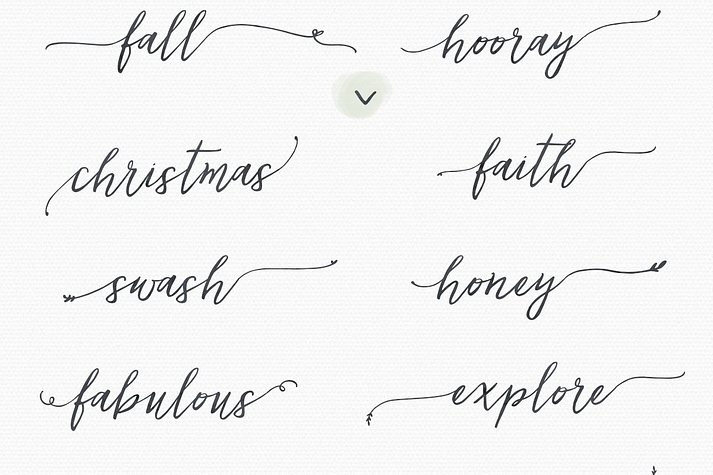 fall hooray
christmas faith
swash honey
fabulous explore